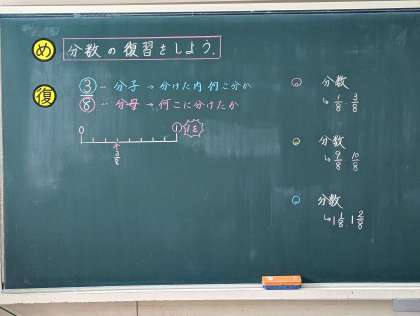 め 分数の復習をしよう.
復 3 … 分子 → 分けた内何こ分か
8 … 分母 → 何こに分けたか
0 1
3/8
○ 分数
↳ 1/8 . 3/8
○ 分数
↳ 9/8 10/8
○ 分数
↳ 1 1/8 . 1 2/8